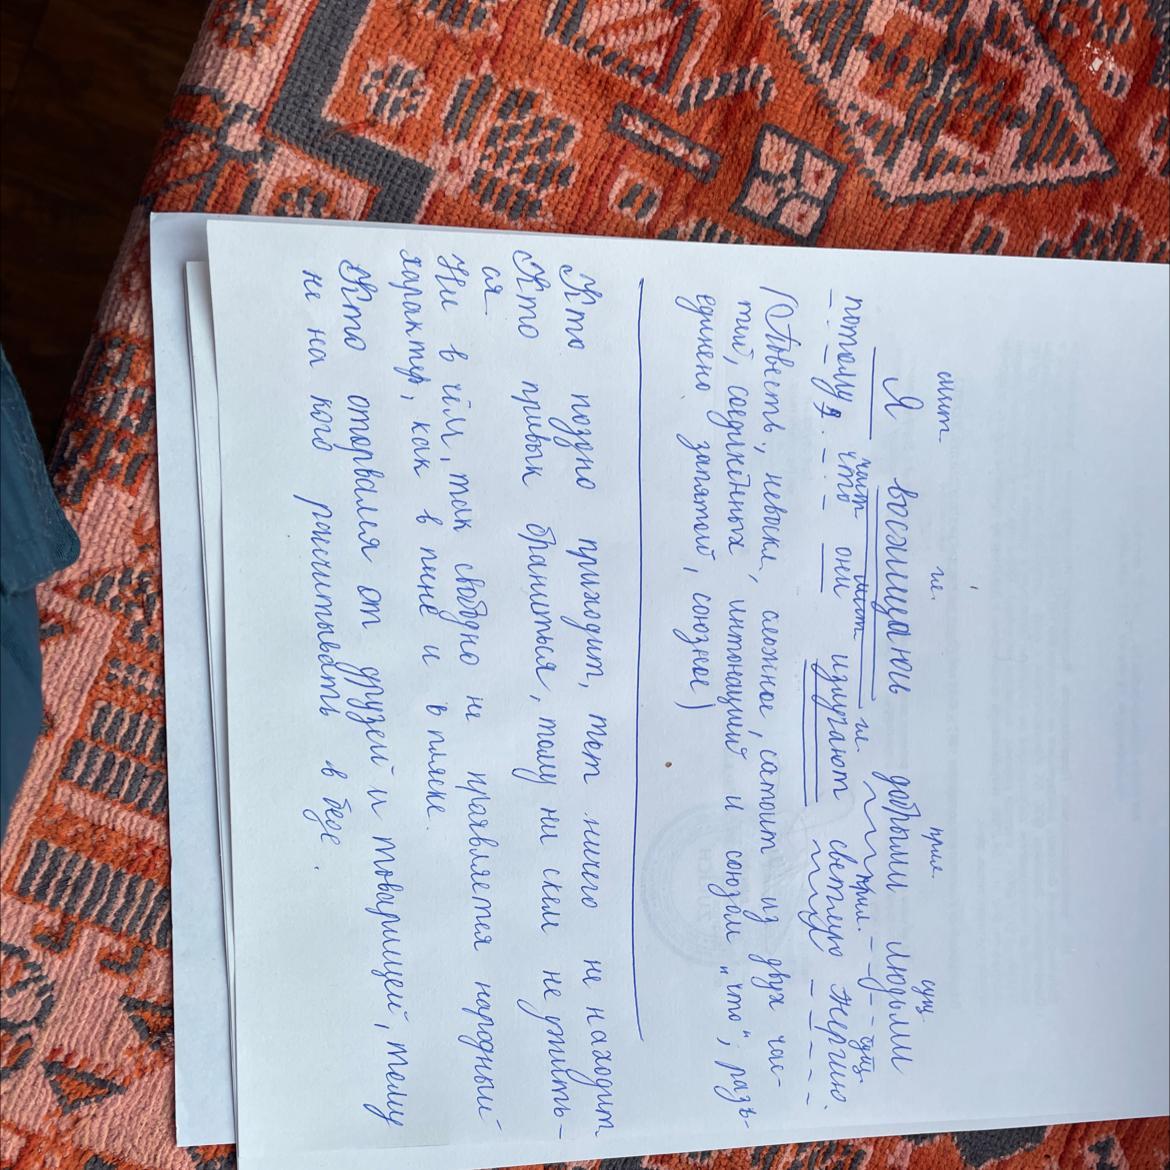 мест. гл. прил. сущ.
Я восхищаюсь добрыми людьми
част. мест. гл. прил. сущ.
потому что они излучают светлую энергию.
(Повеств., невоскл., сложное, состоит из двух час-
тей, соединённых интонацией и союзом "что", разъ-
единено запятой, союзное)
Кто поздно приходит, тот ничего не находит
Кто привык браниться, тому ни скем не ужить-
ся.
Ни в чём, так свободно не проявляется народный
характер, как в песне и в пляске.
Кто оторвался от друзей и товарищей, тому
не на кого расчитывать в беде.